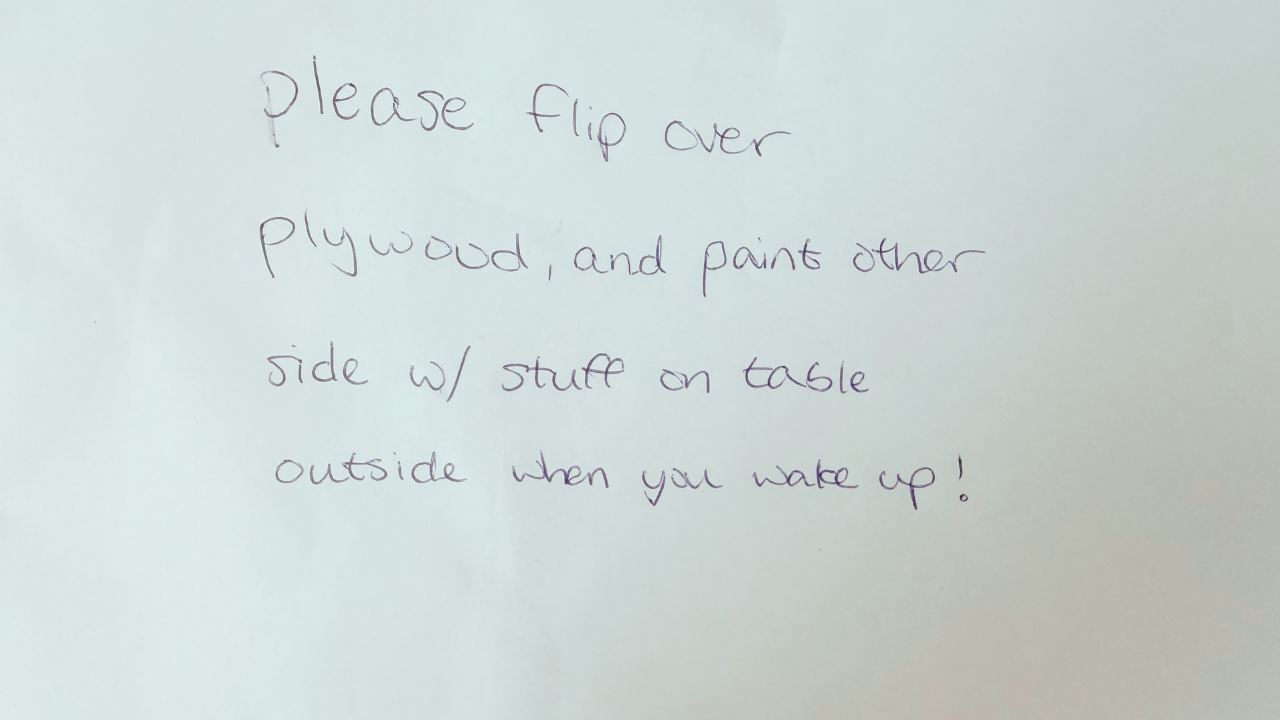 please flip over
plywood, and paint other
side w/ stuff on table
outside when you wake up!